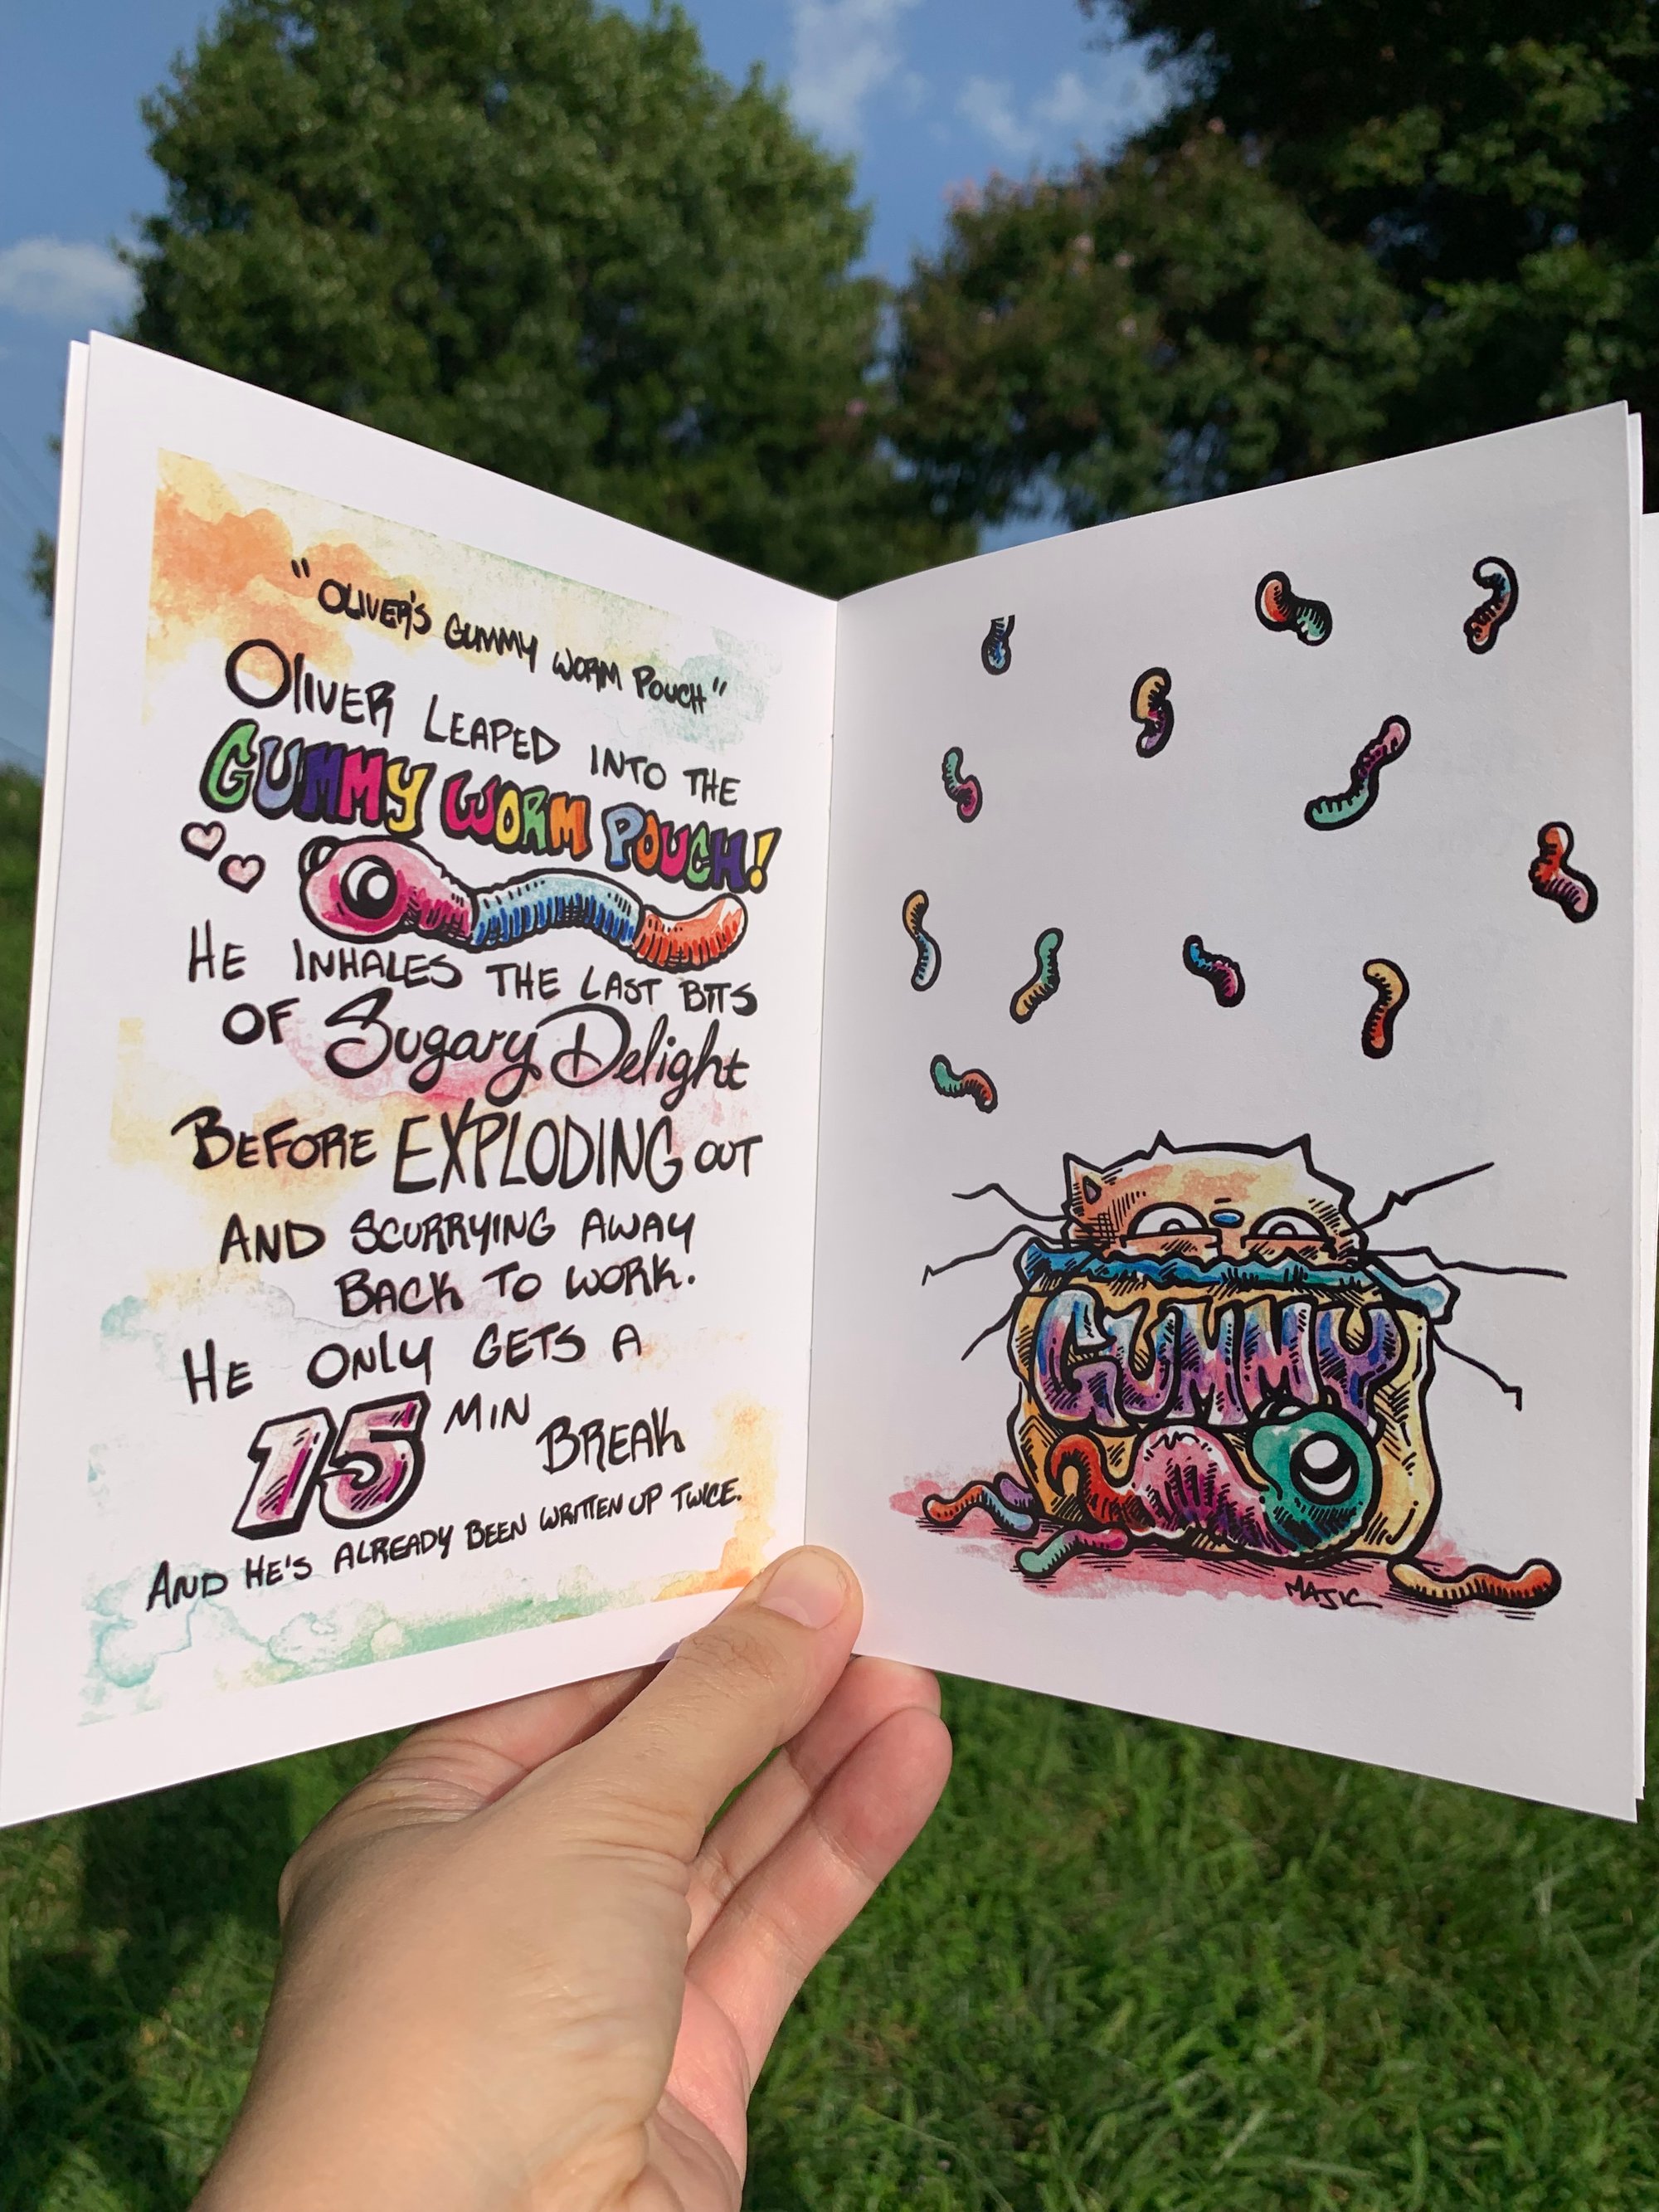 "Oliver's Gummy Worm Pouch"
Oliver Leaped into the
Gummy Worm Pouch!
He inhales the last bits
of Sugary Delight
Before EXPLODING out
and scurrying away
Back to work.
He only gets a
15 min Break
And he's already been written up twice.
GUMMY
MAJIC